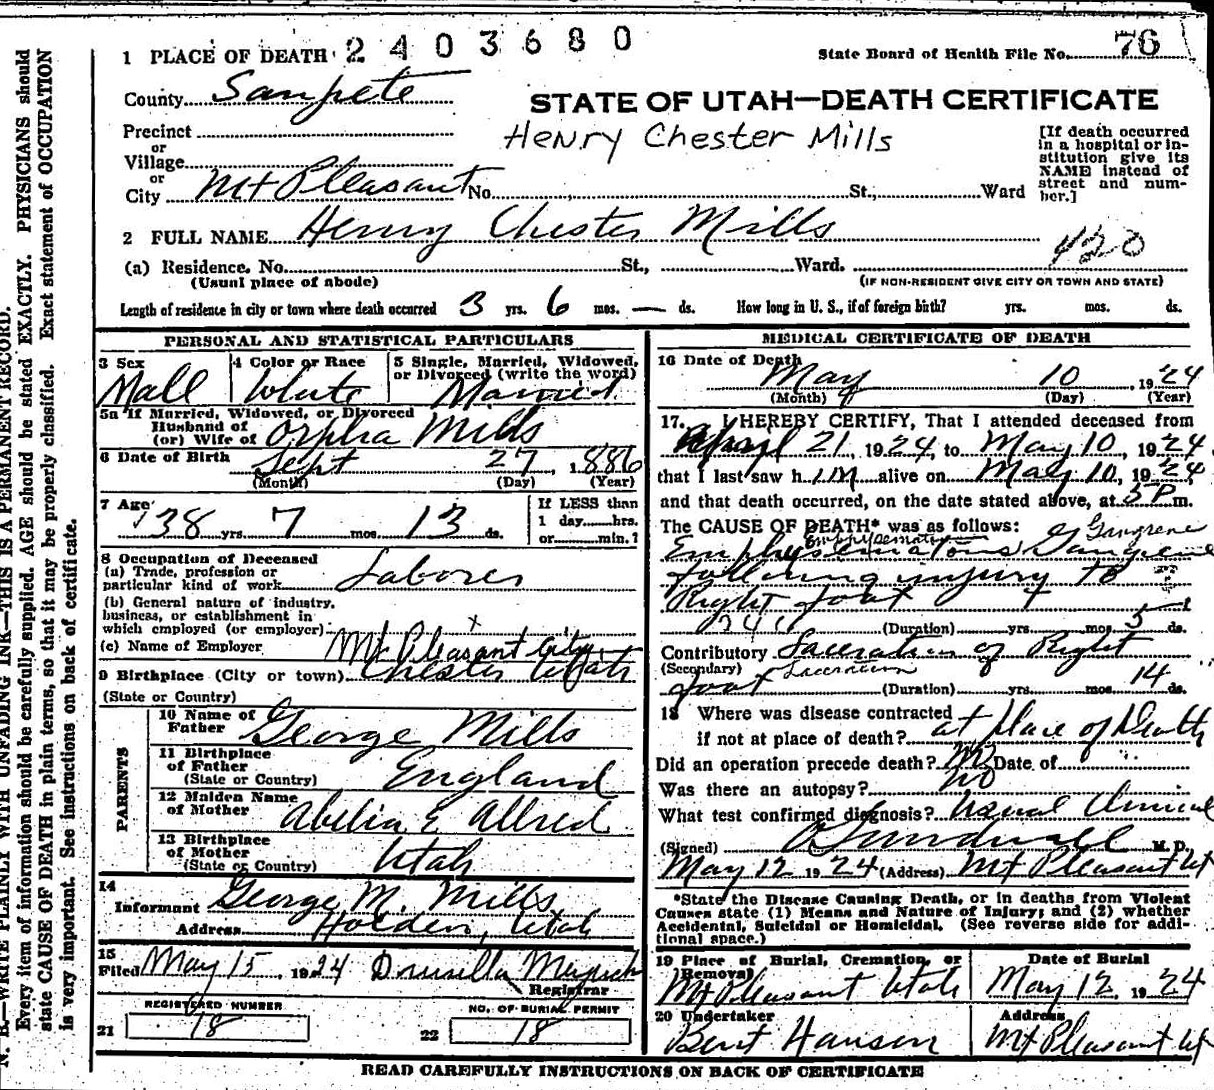 2403680
1 PLACE OF DEATH
State Board of Health File No. 76
County Sanpete
STATE OF UTAH—DEATH CERTIFICATE
Precinct
Henry Chester Mills
or
Village
or
City Mt Pleasant No. St., Ward
[If death occurred
in a hospital or in-
stitution give its
NAME instead of
street and num-
ber.]
2 FULL NAME Henry Chester Mills
420
(a) Residence. No. St., Ward.
(Usual place of abode) (IF NON-RESIDENT GIVE CITY OR TOWN AND STATE)
Length of residence in city or town where death occurred 3 yrs. 6 mos. — ds. How long in U. S., if of foreign birth? yrs. mos. ds.
PERSONAL AND STATISTICAL PARTICULARS
3 Sex Mall
4 Color or Race White
5 Single, Married, Widowed,
or Divorced (write the word)
Married
5a If Married, Widowed, or Divorced
Husband of
(or) Wife of Orpha Mills
6 Date of Birth Sept 27, 1886
(Month) (Day) (Year)
7 Age
38 yrs. 7 mos. 13 ds.
If LESS than
1 day......hrs.
or......min.?
8 Occupation of Deceased
(a) Trade, profession or
particular kind of work Laborer
(b) General nature of industry,
business, or establishment in
which employed (or employer) x
(c) Name of Employer Mt Pleasant City
9 Birthplace (City or town) Chester Utah
(State or Country)
PARENTS
10 Name of
Father George Mills
11 Birthplace
of Father
(State or Country) England
12 Maiden Name
of Mother Abelia E Allred
13 Birthplace
of Mother
(State or Country) Utah
14
Informant George M. Mills
Address Holden, Utah
15
Filed May 15, 1924 Drusilla
Registrar
REGISTERED NUMBER
21 18
NO. OF BURIAL PERMIT
22 18
MEDICAL CERTIFICATE OF DEATH
16 Date of Death
May 10, 1924
(Month) (Day) (Year)
17. I HEREBY CERTIFY, That I attended deceased from
April 21, 1924, to May 10, 1924
that I last saw him alive on May 10, 1924
and that death occurred, on the date stated above, at 5 P m.
The CAUSE OF DEATH* was as follows:
Gangrene
Emphysematous
Emphysematous Gangrene
following injury to
Right foot
(Duration) yrs. mos. 5 ds.
Contributory Laceration of Right
(Secondary) foot Laceration
(Duration) yrs. mos. 14 ds.
18 Where was disease contracted
if not at place of death? at place of Death
Did an operation precede death? no Date of
Was there an autopsy? no
What test confirmed diagnosis? Usual Clinical
(Signed) Sundwall M. D.
May 12 1924 (Address) Mt Pleasant Ut
*State the Disease Causing Death, or in deaths from Violent
Causes state (1) Means and Nature of Injury; and (2) whether
Accidental, Suicidal or Homicidal. (See reverse side for addi-
tional space.)
19 Place of Burial, Cremation, or
Removal
Mt Pleasant Utah
Date of Burial
May 12, 1924
20 Undertaker
Bent Hansen
Address
Mt Pleasant Ut
READ CAREFULLY INSTRUCTIONS ON BACK OF CERTIFICATE
N. B.—WRITE PLAINLY WITH UNFADING INK—THIS IS A PERMANENT RECORD.
Every item of information should be carefully supplied. AGE should be stated EXACTLY. PHYSICIANS should
state CAUSE OF DEATH in plain terms, so that it may be properly classified. Exact statement of OCCUPATION
is very important. See instructions on back of certificate.